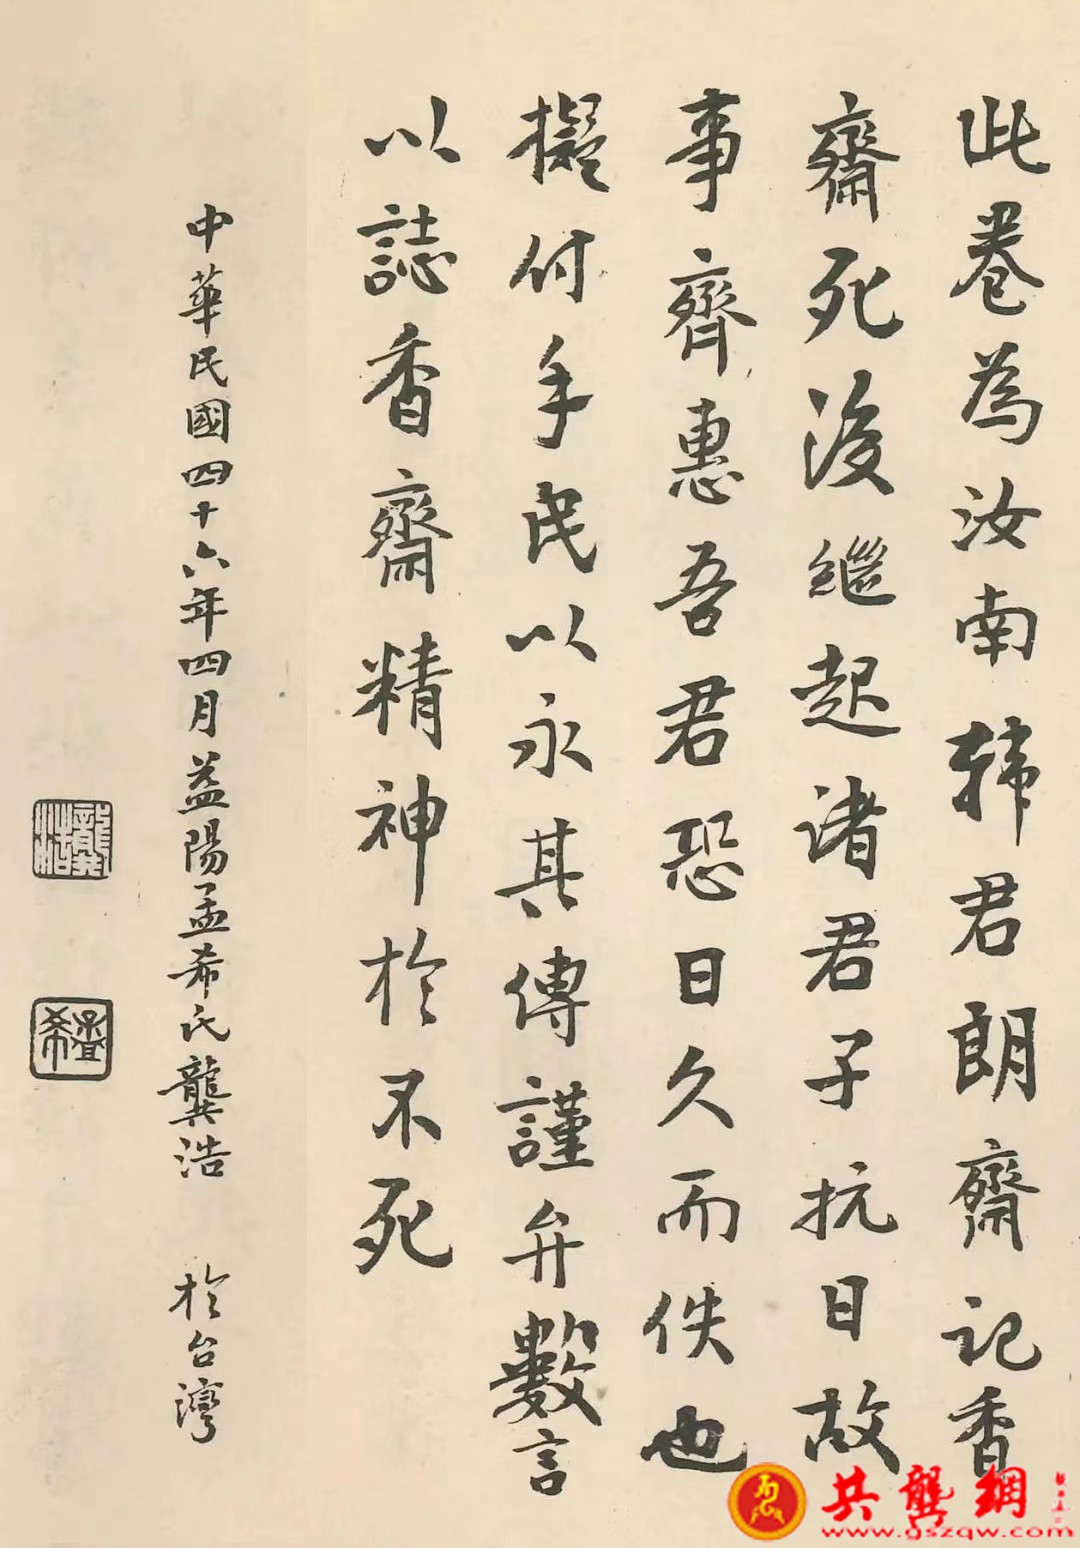 此卷為汝南韓君朗齋記香
齋死後繼起諸君子抗日故
事齊惠吾君恐日久而佚也
擬付手民以永其傳謹弁數言
以誌香齋精神於不死
中華民國四十六年四月益陽孟希氏龔浩 於台灣
龔浩
孟希
共龔網
www.gszqw.com